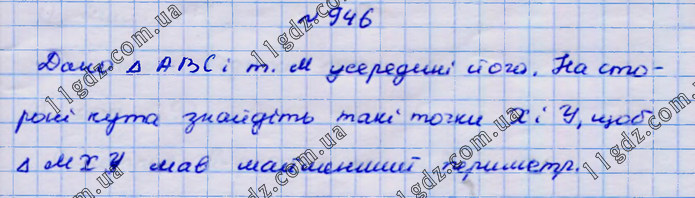 № 946
Дано △ ABC і т. M усередині його. На сто-
роні кута знайдіть такі точки X і Y, щоб
△ MXY мав найменший периметр.
11gdz.com.ua
11gdz.com.ua
11gdz.com.ua
11gdz.com.ua
11gdz.com.ua
11gdz.com.ua